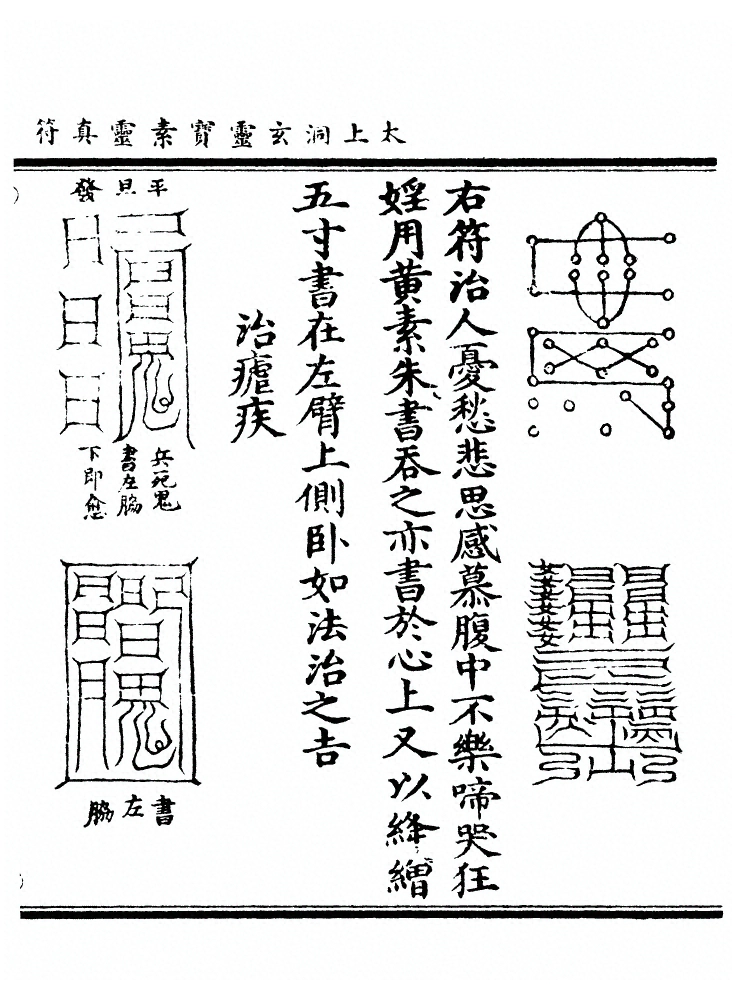 太上洞玄靈寶素靈真符
右符治人憂愁悲思感慕腹中不樂啼哭狂
婬用黄素朱書吞之亦書於心上又以絳繒
五寸書在左臂上側卧如法治之吉
治瘧疾
平旦發
兵死鬼
書左脇
下即愈
書左脇